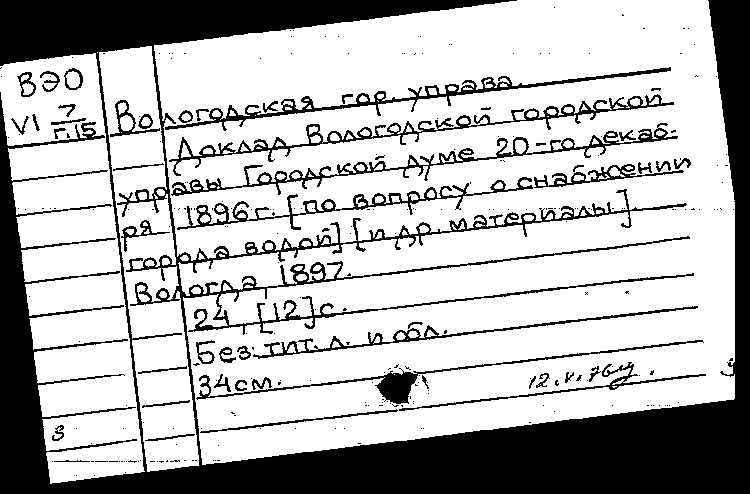 ВЭО
VI 7/Г.15
Вологодская гор. управа.
Доклад Вологодской городской
управы Городской думе 20-го декаб-
ря 1896 г. [по вопросу о снабжении
города водой] [и др. материалы].
Вологда, 1897.
24, [12] с.
Без тит. л. и обл.
34 см.
12.V.76
З